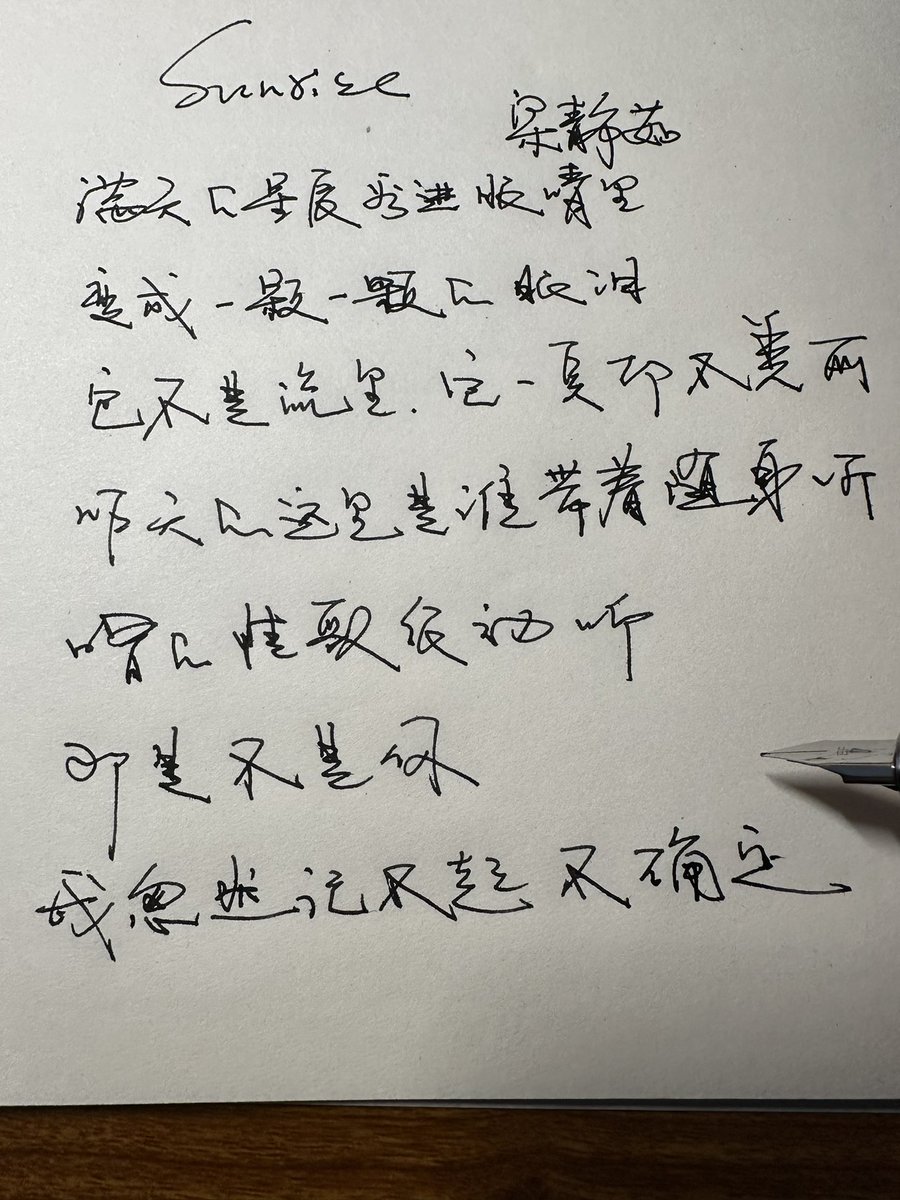 Sunrise
梁静茹
满天的星辰进眼睛里
变成一颗一颗的眼泪
它不是流星.它一点不美丽
昨天的这里是谁带着随身听
唱的情歌很动听
那是不是你
我忽然记不起 不确定